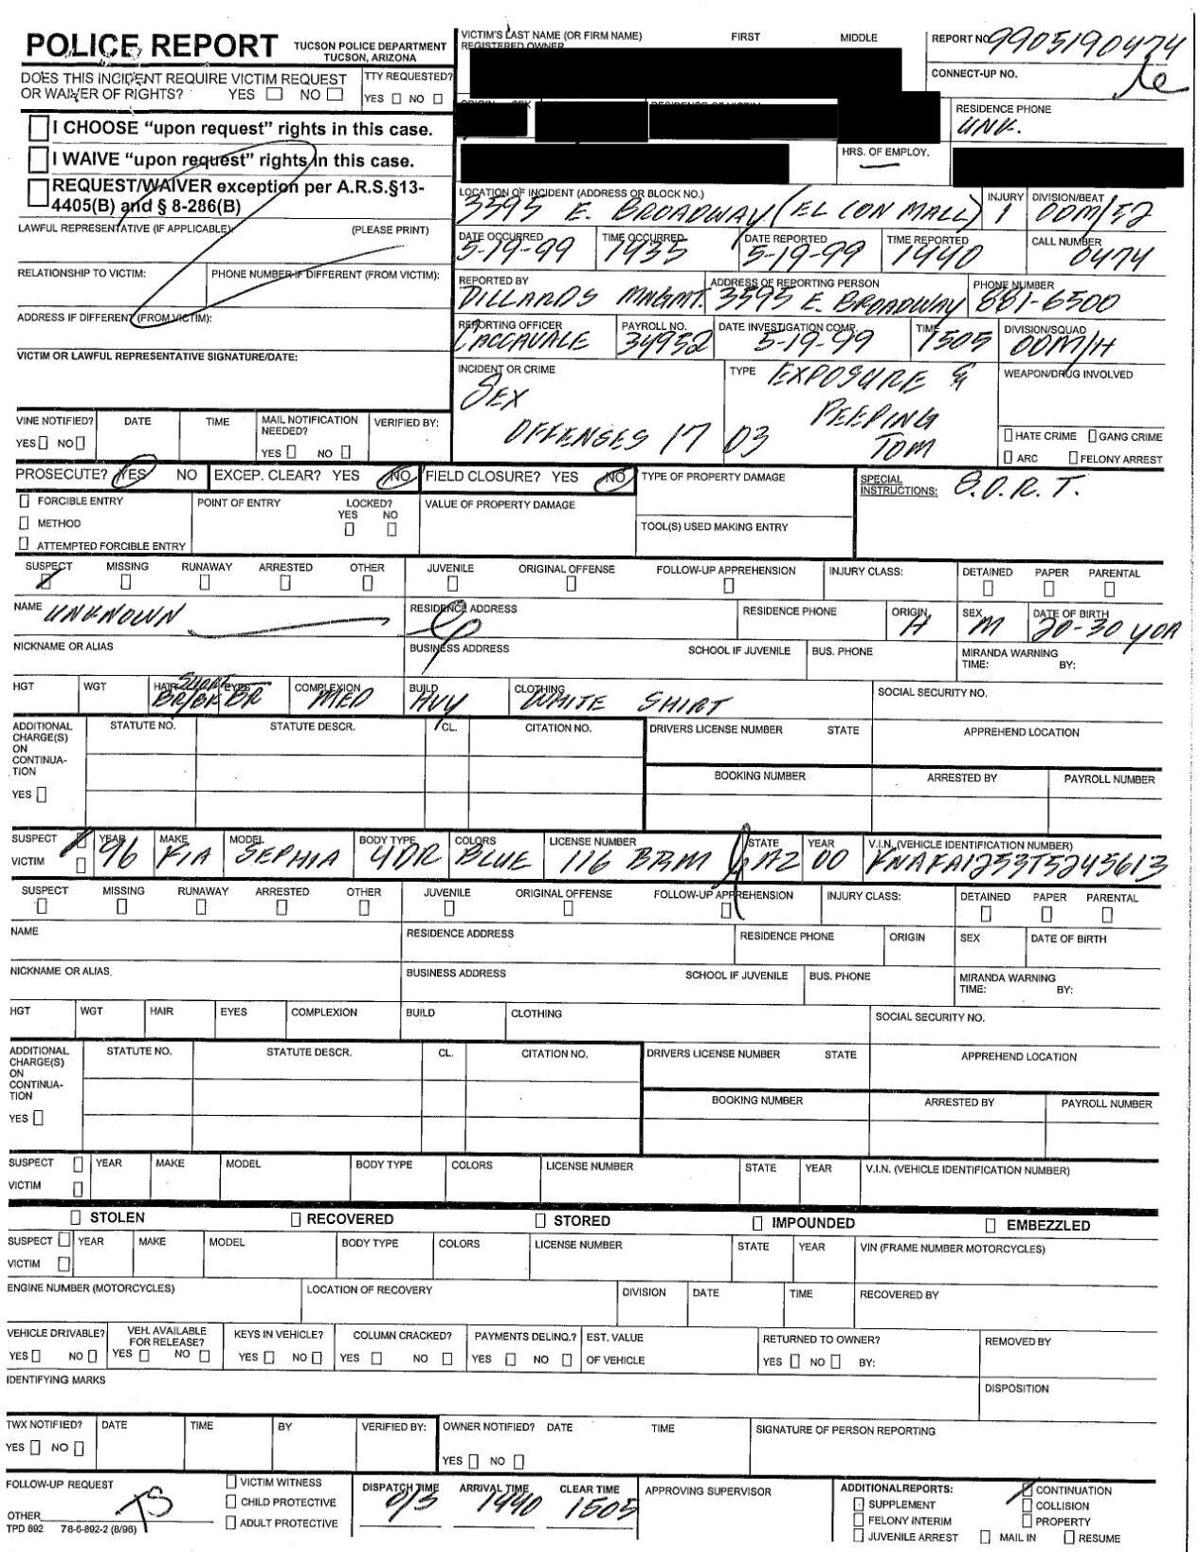 POLICE REPORT TUCSON POLICE DEPARTMENT TUCSON, ARIZONA
DOES THIS INCIDENT REQUIRE VICTIM REQUEST OR WAIVER OF RIGHTS? YES NO
TTY REQUESTED? YES NO
I CHOOSE "upon request" rights in this case.
I WAIVE "upon request" rights in this case.
REQUEST/WAIVER exception per A.R.S.§13-4405(B) and § 8-286(B)
LAWFUL REPRESENTATIVE (IF APPLICABLE) (PLEASE PRINT)
RELATIONSHIP TO VICTIM: PHONE NUMBER IF DIFFERENT (FROM VICTIM):
ADDRESS IF DIFFERENT (FROM VICTIM):
VICTIM OR LAWFUL REPRESENTATIVE SIGNATURE/DATE:
VINE NOTIFIED? YES NO DATE TIME MAIL NOTIFICATION NEEDED? YES NO VERIFIED BY:
VICTIM'S LAST NAME (OR FIRM NAME) FIRST MIDDLE
REGISTERED OWNER
REPORT NO. 9905190474
CONNECT-UP NO.
RESIDENCE PHONE UNK.
HRS. OF EMPLOY.
LOCATION OF INCIDENT (ADDRESS OR BLOCK NO.) 3595 E. BROADWAY (EL CON MALL) INJURY 1 DIVISION/BEAT ODM/52
DATE OCCURRED 5-19-99 TIME OCCURRED 1435 DATE REPORTED 5-19-99 TIME REPORTED 1440 CALL NUMBER 0474
REPORTED BY DILLARDS MNGMT. ADDRESS OF REPORTING PERSON 3595 E. BROADWAY PHONE NUMBER 881-6500
REPORTING OFFICER CACCAVALE PAYROLL NO. 34952 DATE INVESTIGATION COMP. 5-19-99 TIME 1505 DIVISION/SQUAD ODM/H
INCIDENT OR CRIME SEX OFFENSES 17 TYPE EXPOSURE & PEEPING TOM 03 WEAPON/DRUG INVOLVED
HATE CRIME GANG CRIME
ARC FELONY ARREST
PROSECUTE? YES NO EXCEP. CLEAR? YES NO FIELD CLOSURE? YES NO TYPE OF PROPERTY DAMAGE SPECIAL INSTRUCTIONS: B.O.R.T.
FORCIBLE ENTRY POINT OF ENTRY LOCKED? YES NO VALUE OF PROPERTY DAMAGE
METHOD
ATTEMPTED FORCIBLE ENTRY TOOL(S) USED MAKING ENTRY
SUSPECT MISSING RUNAWAY ARRESTED OTHER JUVENILE ORIGINAL OFFENSE FOLLOW-UP APPREHENSION INJURY CLASS: DETAINED PAPER PARENTAL
NAME UNKNOWN RESIDENCE ADDRESS RESIDENCE PHONE ORIGIN H SEX M DATE OF BIRTH 20-30 YOA
NICKNAME OR ALIAS BUSINESS ADDRESS SCHOOL IF JUVENILE BUS. PHONE MIRANDA WARNING TIME: BY:
HGT WGT HAIR SHORT BR/BK EYES BR COMPLEXION MED BUILD HVY CLOTHING WHITE SHIRT SOCIAL SECURITY NO.
ADDITIONAL CHARGE(S) ON CONTINUATION YES STATUTE NO. STATUTE DESCR. CL. CITATION NO. DRIVERS LICENSE NUMBER STATE APPREHEND LOCATION
BOOKING NUMBER ARRESTED BY PAYROLL NUMBER
SUSPECT VICTIM YEAR 96 MAKE KIA MODEL SEPHIA BODY TYPE 4DR COLORS BLUE LICENSE NUMBER 116 BRM STATE AZ YEAR 00 V.I.N. (VEHICLE IDENTIFICATION NUMBER) KNAFA1253T5245613
SUSPECT MISSING RUNAWAY ARRESTED OTHER JUVENILE ORIGINAL OFFENSE FOLLOW-UP APPREHENSION INJURY CLASS: DETAINED PAPER PARENTAL
NAME RESIDENCE ADDRESS RESIDENCE PHONE ORIGIN SEX DATE OF BIRTH
NICKNAME OR ALIAS BUSINESS ADDRESS SCHOOL IF JUVENILE BUS. PHONE MIRANDA WARNING TIME: BY:
HGT WGT HAIR EYES COMPLEXION BUILD CLOTHING SOCIAL SECURITY NO.
ADDITIONAL CHARGE(S) ON CONTINUATION YES STATUTE NO. STATUTE DESCR. CL. CITATION NO. DRIVERS LICENSE NUMBER STATE APPREHEND LOCATION
BOOKING NUMBER ARRESTED BY PAYROLL NUMBER
SUSPECT VICTIM YEAR MAKE MODEL BODY TYPE COLORS LICENSE NUMBER STATE YEAR V.I.N. (VEHICLE IDENTIFICATION NUMBER)
STOLEN RECOVERED STORED IMPOUNDED EMBEZZLED
SUSPECT VICTIM YEAR MAKE MODEL BODY TYPE COLORS LICENSE NUMBER STATE YEAR VIN (FRAME NUMBER MOTORCYCLES)
ENGINE NUMBER (MOTORCYCLES) LOCATION OF RECOVERY DIVISION DATE TIME RECOVERED BY
VEHICLE DRIVABLE? YES NO VEH. AVAILABLE FOR RELEASE? YES NO KEYS IN VEHICLE? YES NO COLUMN CRACKED? YES NO PAYMENTS DELINQ.? YES NO EST. VALUE OF VEHICLE RETURNED TO OWNER? YES NO BY: REMOVED BY
IDENTIFYING MARKS DISPOSITION
TWX NOTIFIED? YES NO DATE TIME BY VERIFIED BY: OWNER NOTIFIED? YES NO DATE TIME SIGNATURE OF PERSON REPORTING
FOLLOW-UP REQUEST VICTIM WITNESS DISPATCH TIME O/S ARRIVAL TIME 1440 CLEAR TIME 1505 APPROVING SUPERVISOR ADDITIONAL REPORTS: CONTINUATION
CHILD PROTECTIVE SUPPLEMENT COLLISION
OTHER ADULT PROTECTIVE FELONY INTERIM PROPERTY
TPD 892 78-6-892-2 (8/98) JUVENILE ARREST MAIL IN RESUME